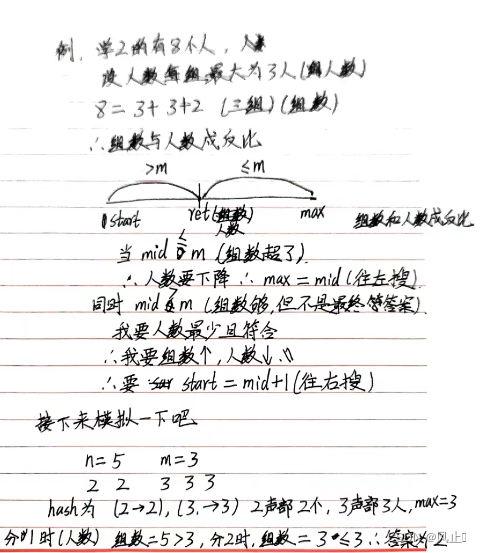 例. 学2的有8个人,
设人数每组最大为3人(组人数)
8 = 3+3+2 (三组)(组数)
∴组数与人数成反比
>m ≤m
start ret(组数) max 组数和人数成反比
人数
当 mid m (组数超了)
∴人数要下降 ∴ max = mid (往左搜)
同时 mid m (组数够,但不是最终答案)
我要人数最少且符合
∴我要组数↑,人数↓
∴要 start = mid+1 (往右搜)
接下来模拟一下吧
n=5 m=3
2 2 3 3 3
hash为 (2→2), (3→3) 2声部2个, 3声部3人, max=3
分1时(人数) 组数=5>3, 分2时, 组数=3≤3 ∴答案为2